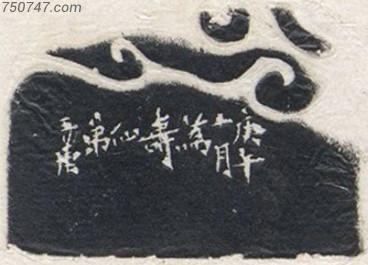 750747.com
庚午
十月
為
壽
仙
弟